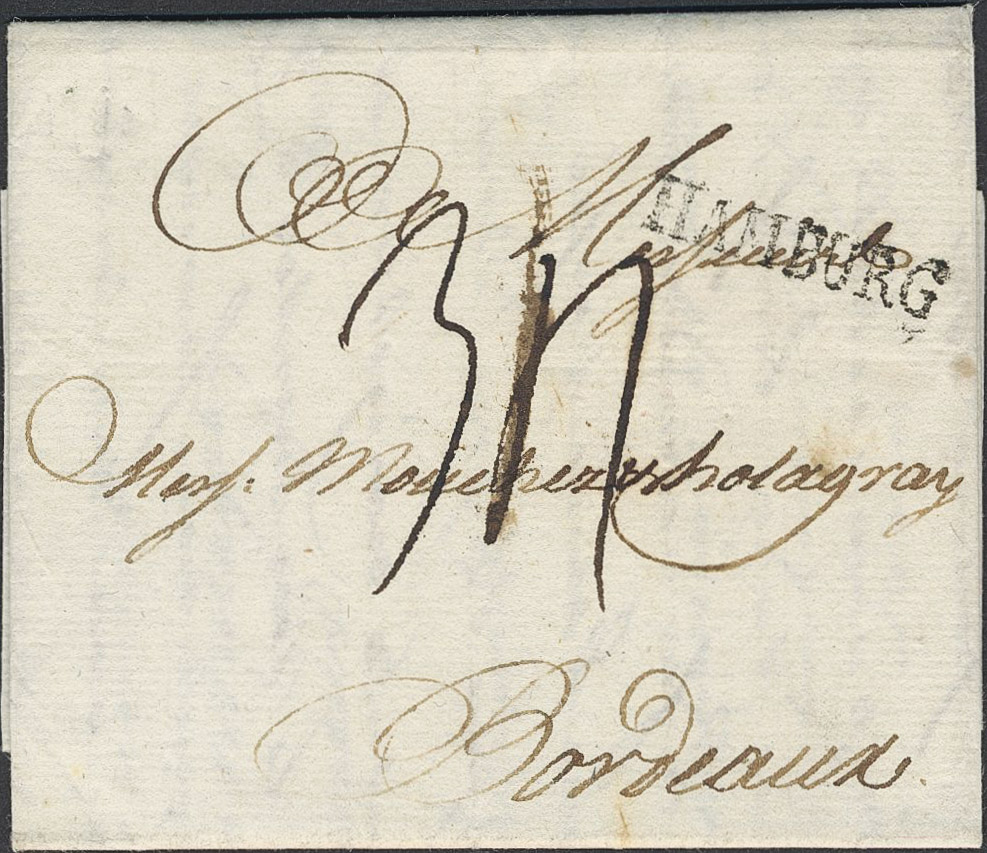 A Messieurs
HAMBURG
34
Mess: Moucher & holagray
Bordeaux